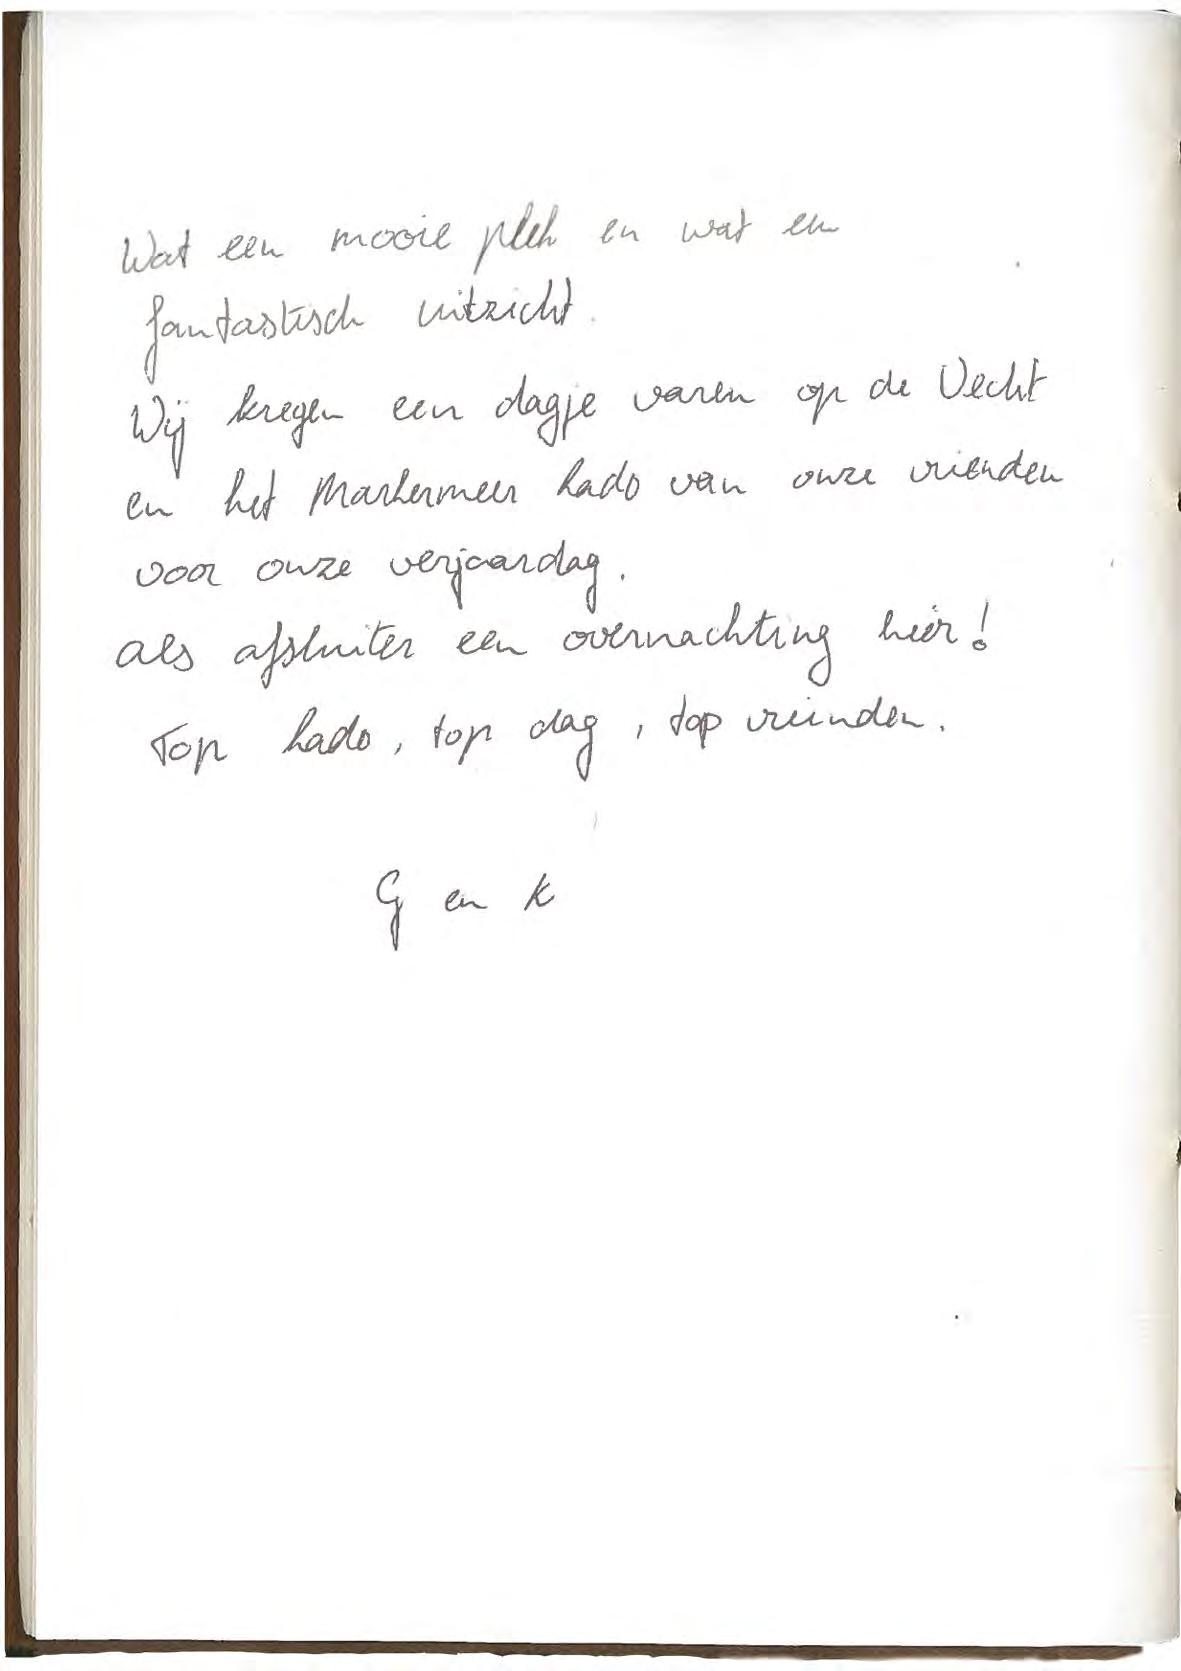 Wat een mooie plek en wat een
fantastisch uitzicht.
Wij kregen een dagje varen op de Vecht
en het Markermeer kado van onze vrienden
voor onze verjaardag.
als afsluiter een overnachting hier!
Top kado, top dag, top vrienden.
G en K